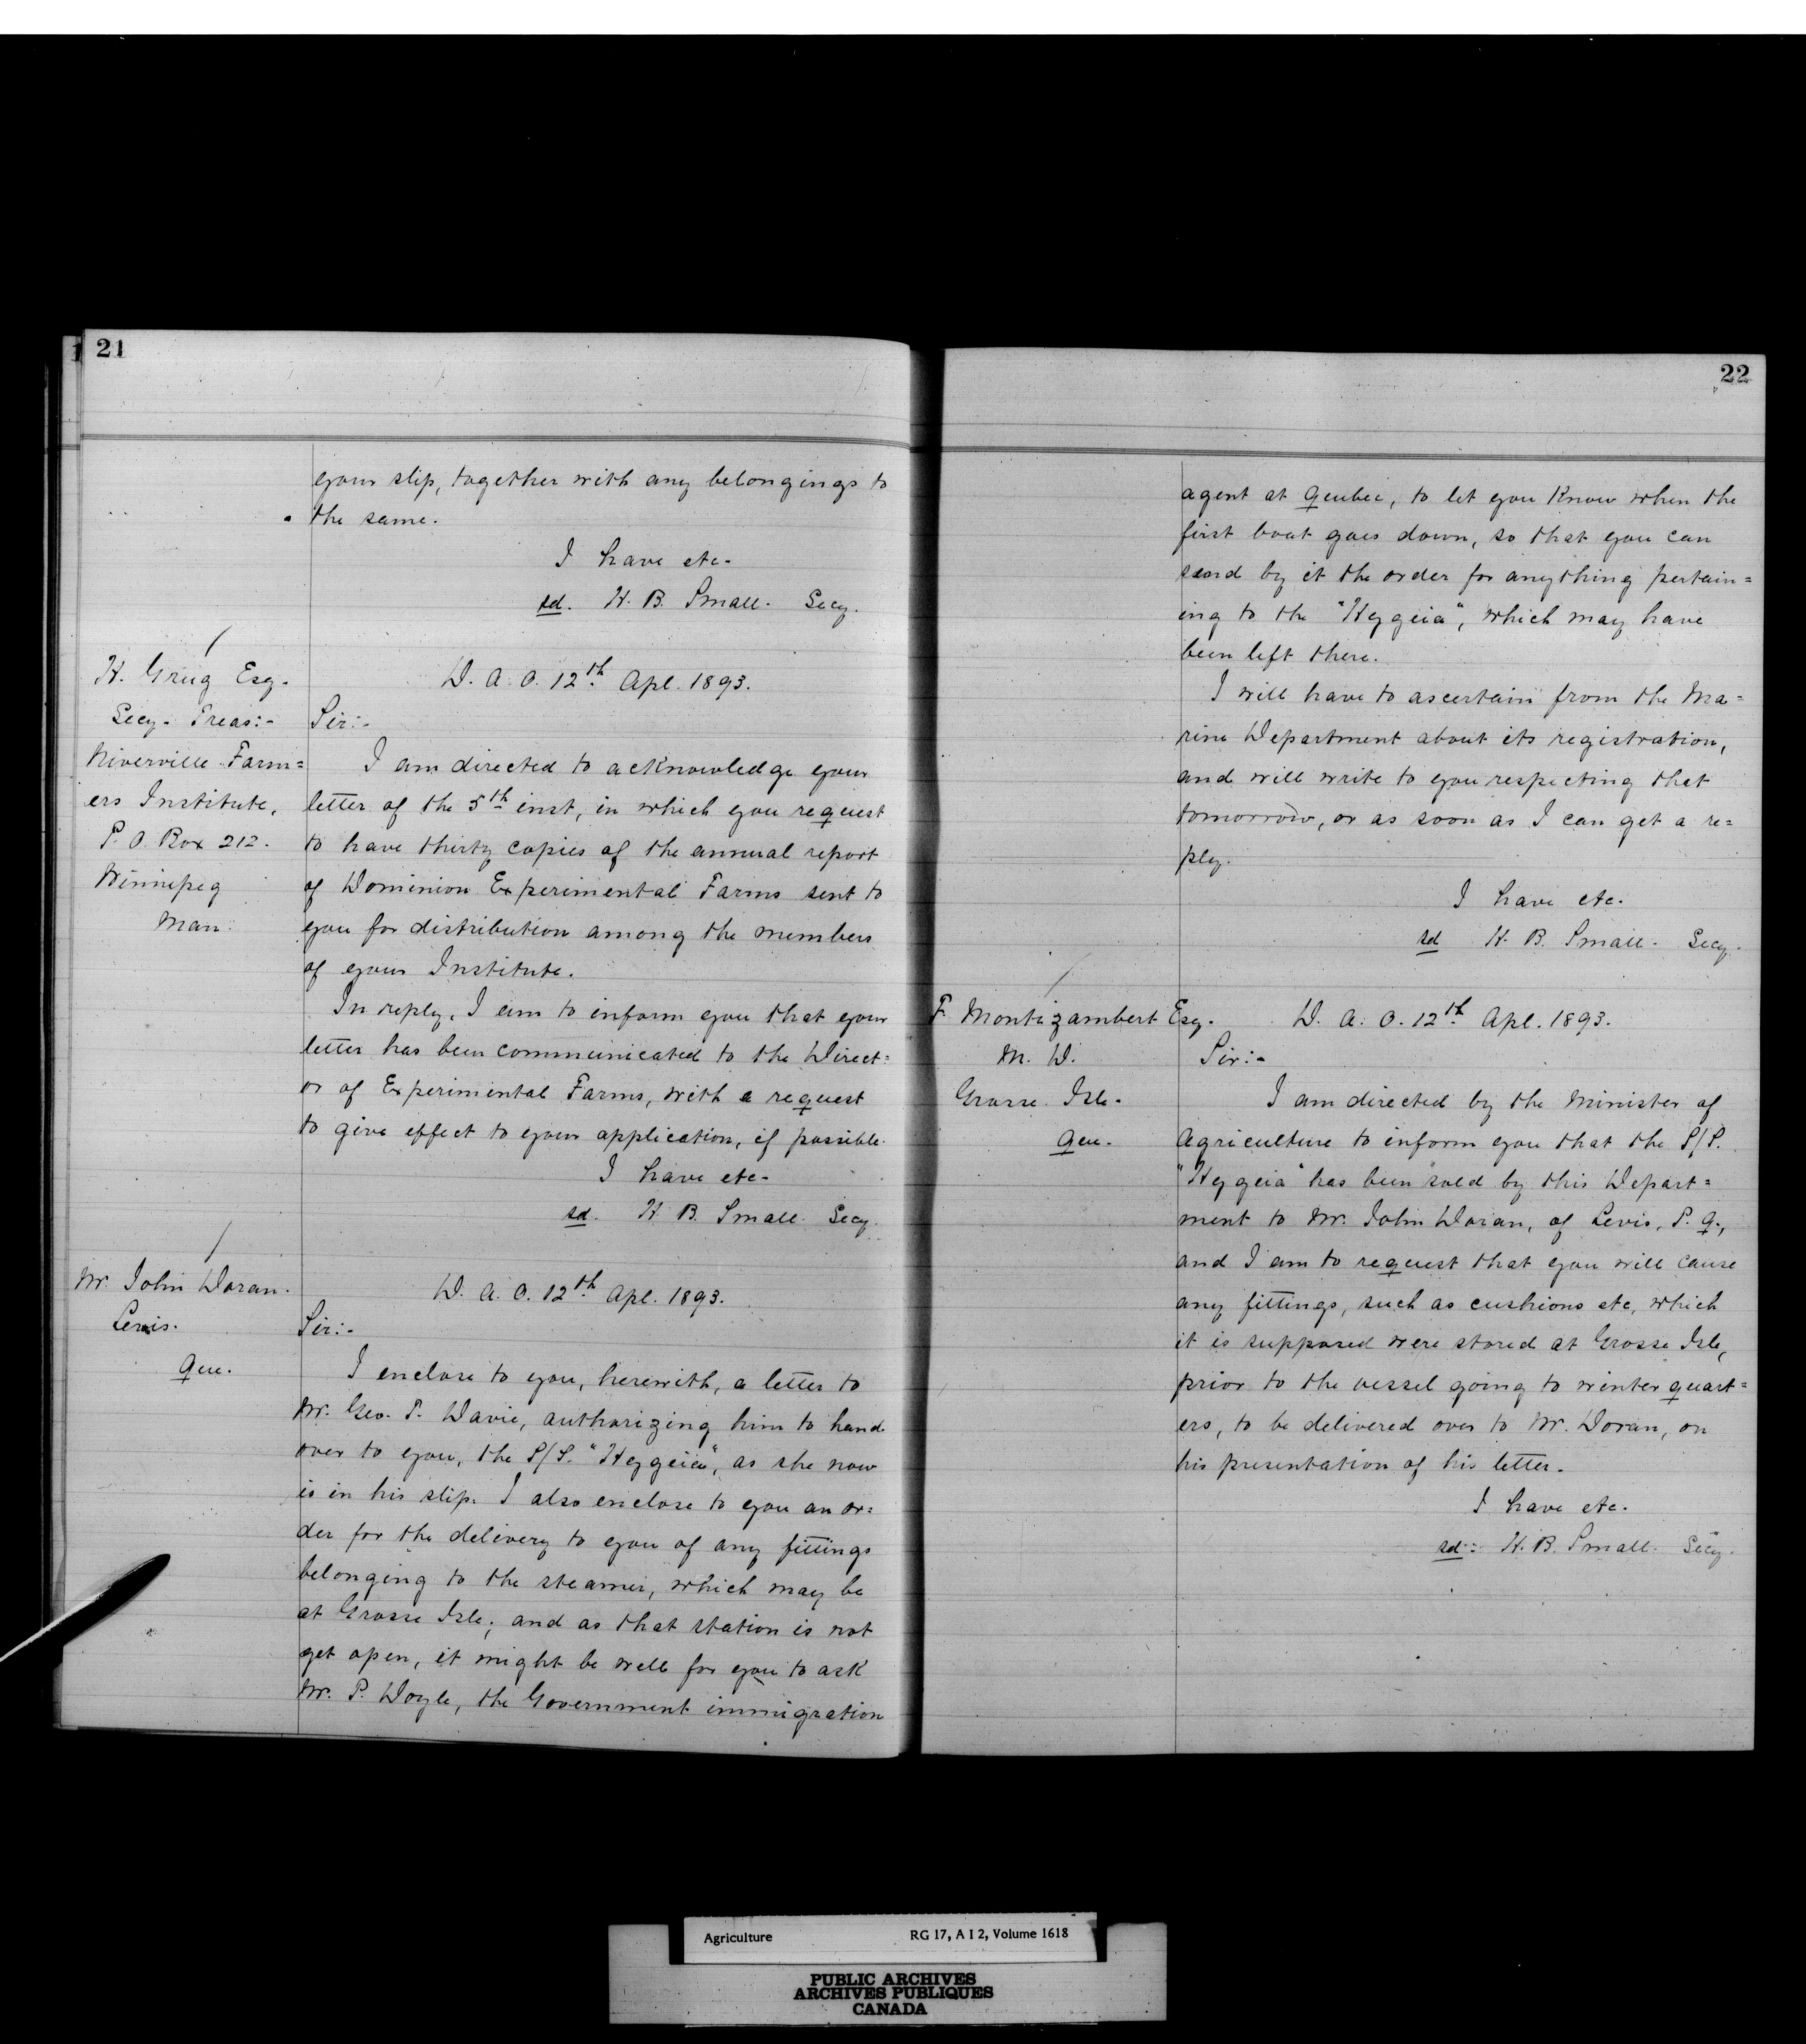 21
your slip, together with any belongings to
the same.
I have etc.
sd. H. B. Small. Secy.
H. Greig Esq.
Secy. Treas:-
Niverville Farm=
ers Institute,
P. O. Box 212.
Winnipeg
Man.
D. A. O. 12th Apl. 1893.
Sir:-
I am directed to acknowledge your
letter of the 5th inst, in which you request
to have thirty copies of the annual report
of Dominion Experimental Farms sent to
you for distribution among the members
of your Institute.
In reply, I am to inform you that your
letter has been communicated to the Direct=
or of Experimental Farms, with a request
to give effect to your application, if possible.
I have etc.
sd. H. B. Small. Secy.
Mr. John Doran.
Levis.
Que.
D. A. O. 12th Apl. 1893.
Sir:-
I enclose to you, herewith, a letter to
Mr. Geo. T. Davie, authorizing him to hand
over to you, the S/S. "Hygeia", as she now
is in his slip. I also enclose to you an or=
der for the delivery to you of any fittings
belonging to the steamer, which may be
at Grosse Isle; and as that station is not
yet open, it might be well for you to ask
Mr. P. Doyle, the Government immigration
22
agent at Quebec, to let you know when the
first boat goes down, so that you can
send by it the order for anything pertain=
ing to the "Hygeia", which may have
been left there.
I will have to ascertain from the Ma=
rine Department about its registration,
and will write to you respecting that
tomorrow, or as soon as I can get a re=
ply.
I have etc.
sd H. B. Small. Secy.
F. Montizambert Esq.
M. D.
Grosse Isle.
Que.
D. A. O. 12th Apl. 1893.
Sir:-
I am directed by the Minister of
Agriculture to inform you that the S/S.
"Hygeia" has been sold by this Depart=
ment to Mr. John Doran, of Levis, P. Q.,
and I am to request that you will cause
any fittings, such as cushions etc, which
it is supposed were stored at Grosse Isle,
prior to the vessel going to winter quart=
ers, to be delivered over to Mr. Doran, on
his presentation of his letter.
I have etc.
sd: H. B. Small. Secy.
Agriculture RG 17, A I 2, Volume 1618
PUBLIC ARCHIVES
ARCHIVES PUBLIQUES
CANADA